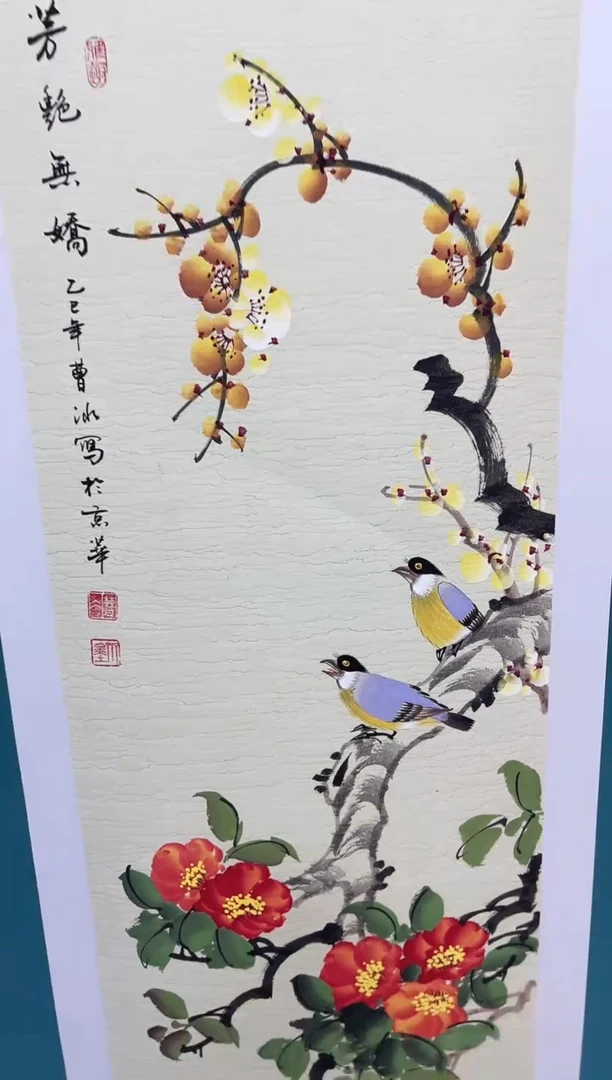 芳艷無嬌
乙巳年曹冰寫於京華